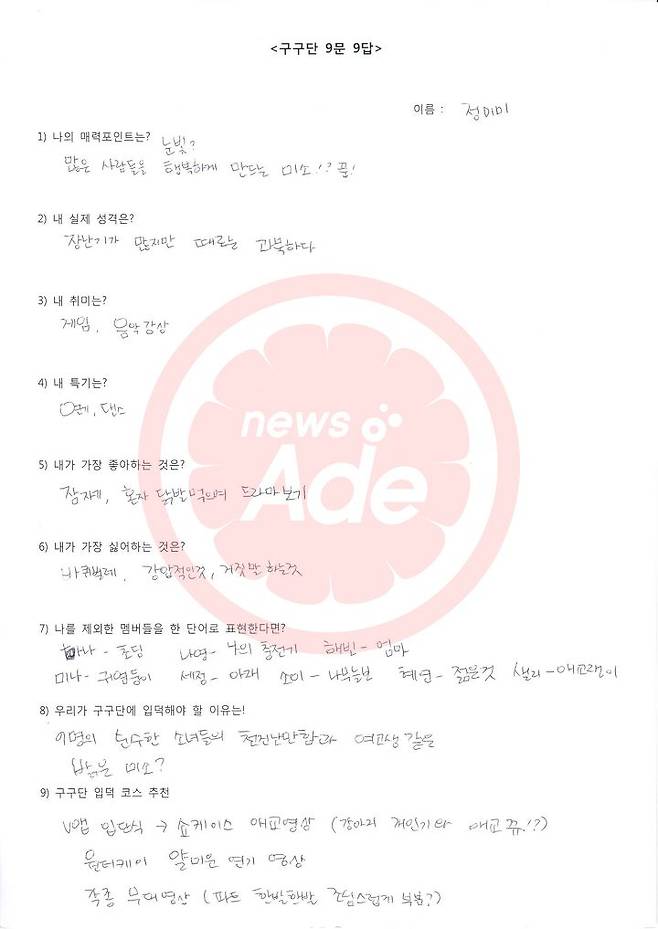 <구구단 9문 9답>
이름 : 정미미
1) 나의 매력포인트는? 눈빛?
많은 사람들을 행복하게 만드는 미소!? 뀨!
2) 내 실제 성격은?
장난기가 많지만 때로는 과묵하다
3) 내 취미는?
게임, 음악감상
4) 내 특기는?
연기, 댄스
5) 내가 가장 좋아하는 것은?
잠자기, 혼자 닭발먹으며 드라마보기
6) 내가 가장 싫어하는 것은?
바퀴벌레, 강압적인것, 거짓말 하는것
7) 나를 제외한 멤버들을 한 단어로 표현한다면?
하나 - 초딩 나영 - 나의 충전기 해빈 - 엄마
미나 - 귀염둥이 세정 - 아재 소이 - 나무늘보 혜연 - 젊은것 샐리 - 애교쟁이
8) 우리가 구구단에 입덕해야 할 이유는!
9명의 순수한 소녀들의 천진난만함과 여고생 같은
밝은 미소?
9) 구구단 입덕 코스 추천
V앱 입단식 → 쇼케이스 애교영상 (강아지 개인기와 애교 뀨!?)
원더케이 얄미운 연기 영상
각종 무대영상 (파트 한발한발 조심스럽게 부분?)
news
Ade